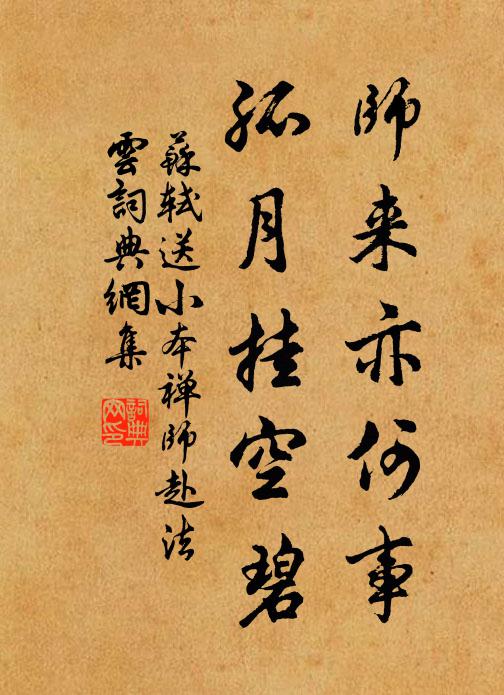 師来亦何事
孤月挂空碧
蘇軾送小本禅師赴法
雲詞典網集
詞典
网印